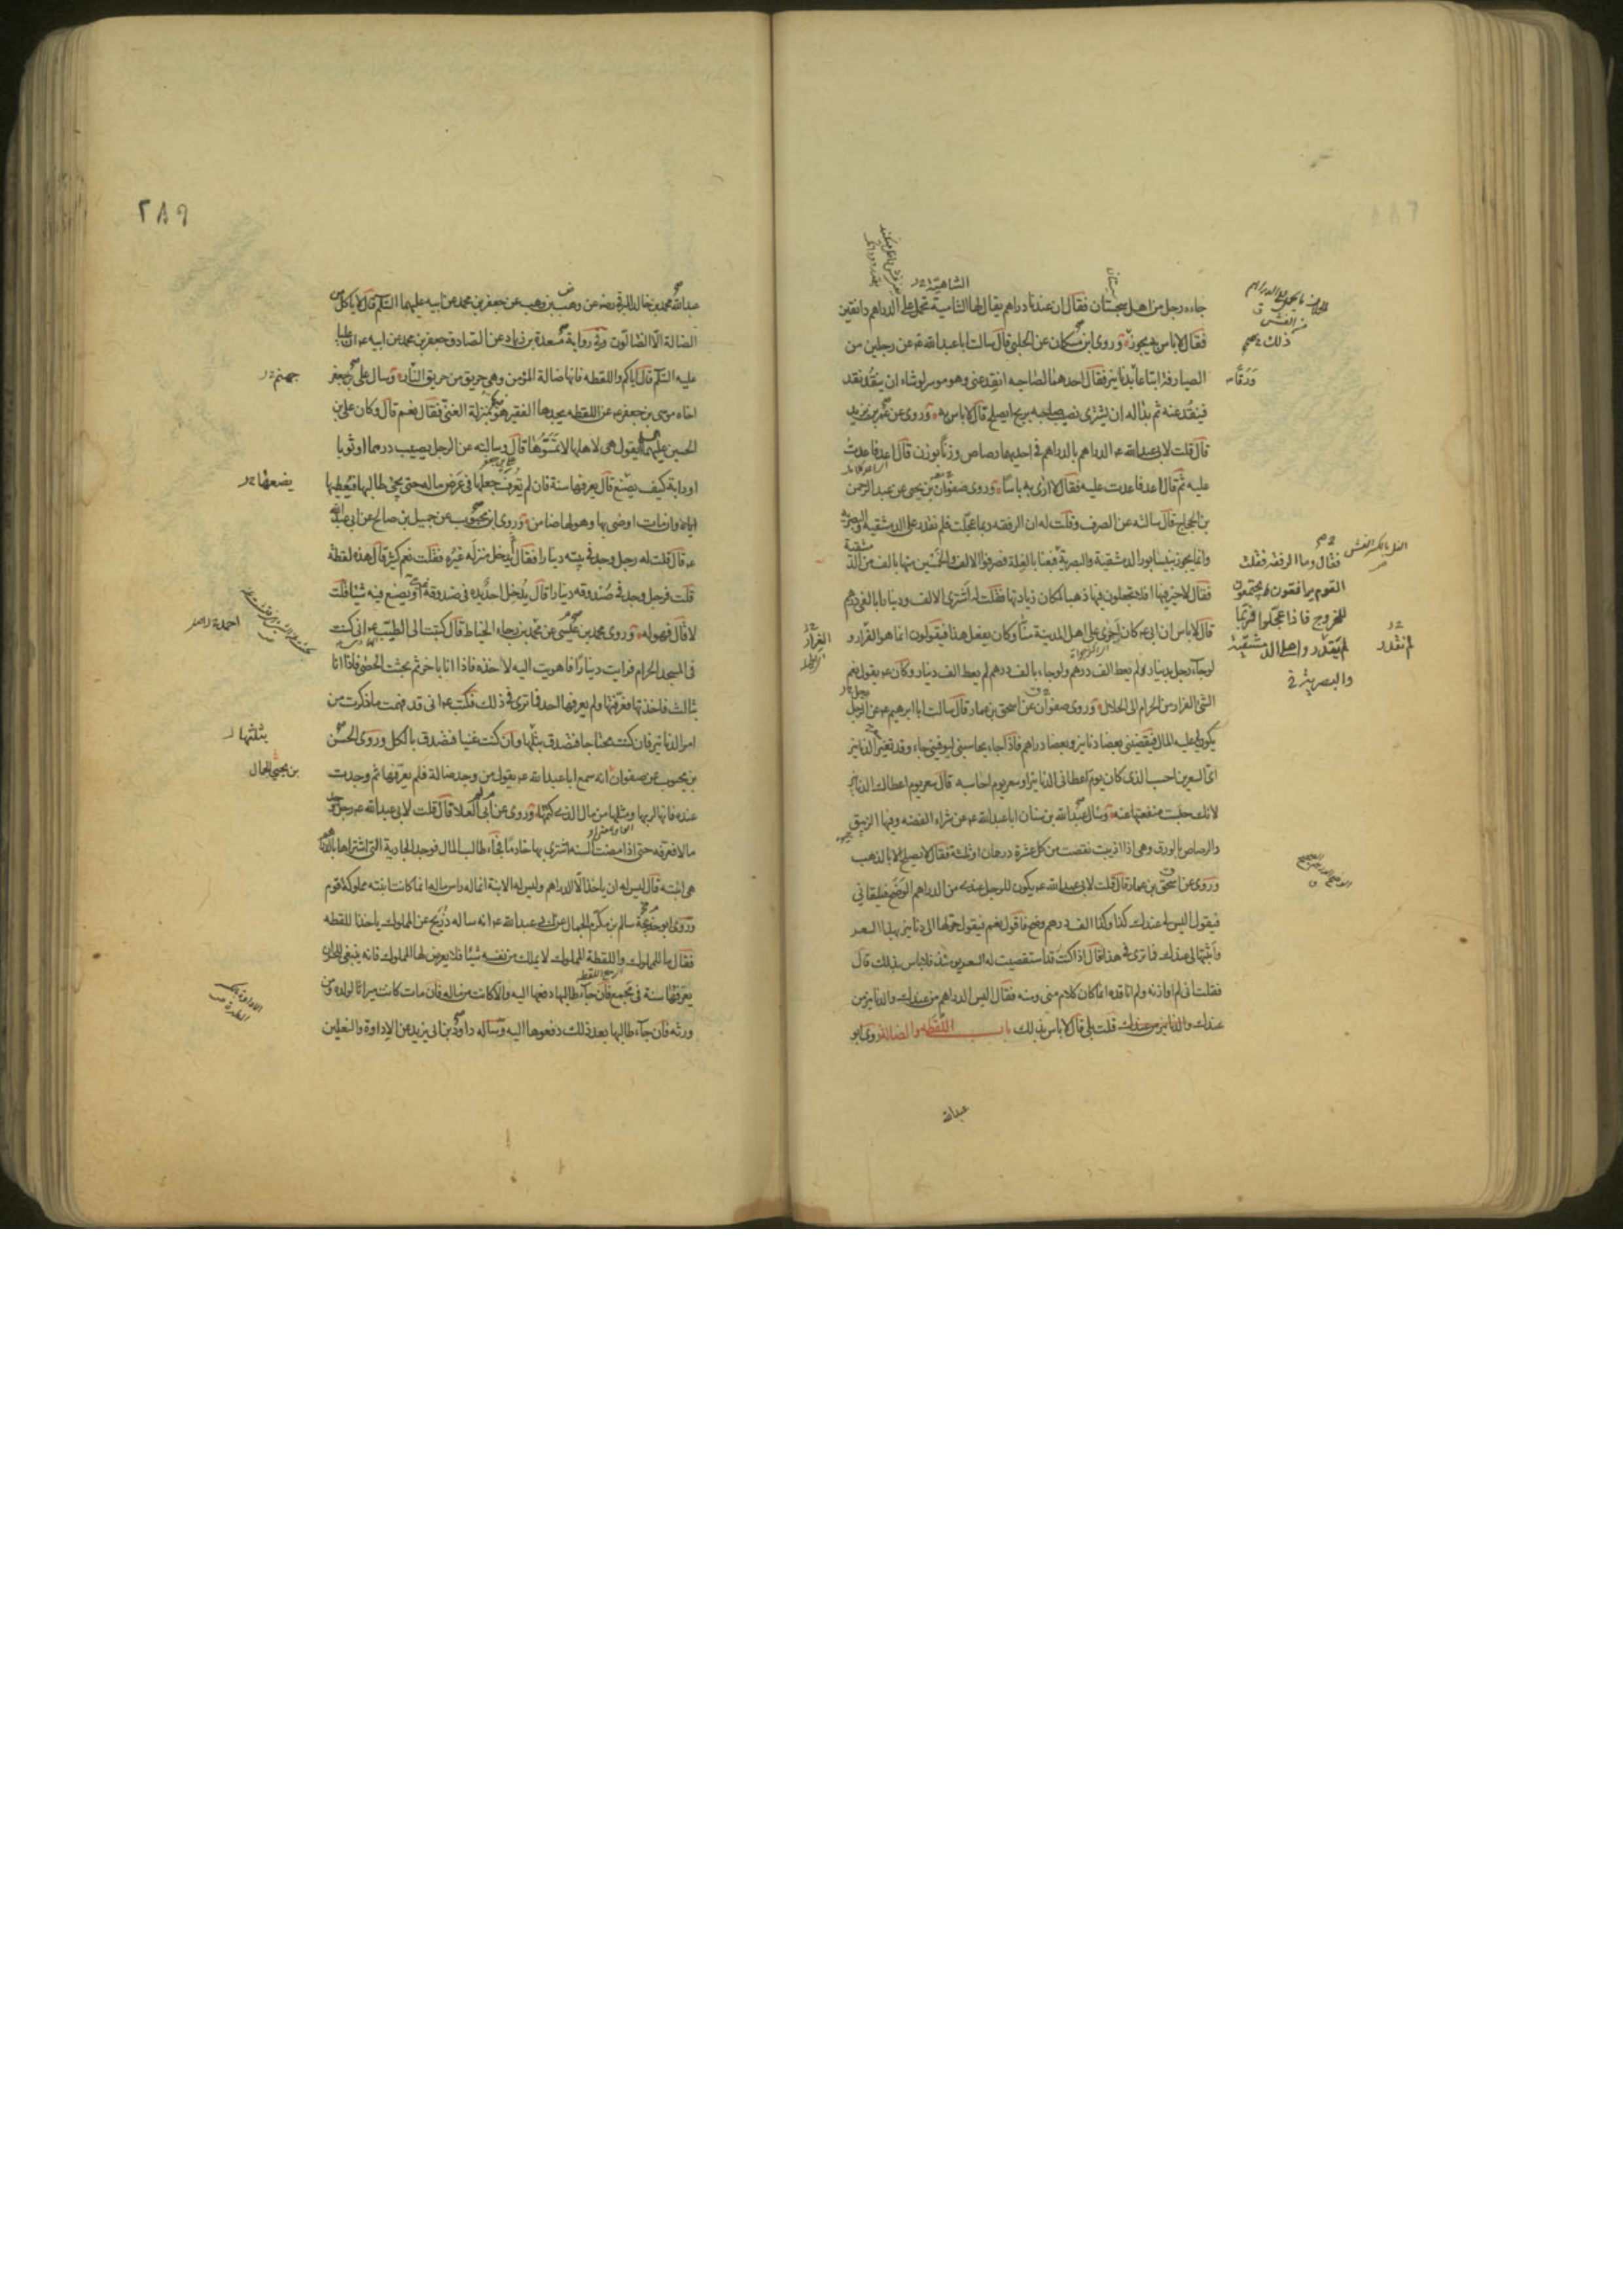 جاءه رجل من اهل سجستان فقال ان عندنا دراهم يقال لها الشامية تحمل على الدراهم دانقين
فقال لا باس به يجوز وروى ابن مسكان عن الحلبي قال سالت ابا عبدالله ع عن رجلين من
الصيارفة ابتاعا بدنانير فقال احدهما لصاحبه انقد عنى وهو موسر لو شاء ان ينقد نقد
فينقد عنه ثم بدا له ان يشترى نصيب صاحبه بربح ايصلح قال لا باس به وروى عن عمر بن يزيد
قال قلت لابى عبدالله ع الدراهم بالدراهم فى احديهما رصاص وزنا بوزن قال اعد فاعدت
عليه ثم قال اعد فاعدت عليه فقال لا ارى به باسا وروى صفوان بن يحيى عن عبدالرحمن
بن الحجاج قال سالته عن الصرف وقلت له ان الرفقه ربما عجلت فلم نقدر على الدمشقية والبصرية
وانما يجوز بنيسابور الدمشقية والبصرية فبعنا بالغلة فصرفوا الالف والخمسين منها بالف من الدمشقية
فقال لا خير فيها افلا تجعلون فيها ذهبا لمكان زيادتها فقلت له اشترى الالف ودينارا بالفى درهم
قال لا باس ان ابى ع كان اجرى على اهل المدينة منا وكان يفعل هذا فيقولون انما هو الفرار و
لو جاء رجل بدينار لم يعط الف درهم ولو جاء بالف درهم لم يعط الف دينار وكان ع يقول نعم
الشئ الفرار من الحرام الى الحلال وروى صفوان عن اسحق بن عمار قال سالت ابا ابرهيم ع عن الرجل
يكون لى عليه المال فيقضينى بعضا دنانير وبعضا دراهم فاذا جاء يحاسبنى ليوفينى جاء وقد تغير الدنانير
اى السعرين احسب الذى كان يوم اعطانى الدنانير او سعر يوم احاسبه قال سعر يوم اعطاك الدنانير
لانك حبست منفعتها عنه وسال عبدالله بن سنان ابا عبدالله ع عن شراء الفضه وفيها الزيبق
والرصاص بالورق وهى اذا اذيبت نقصت من كل عشرة درهمان او ثلثة فقال لا يصلح الا بالذهب
وروى عن اسحق بن عمار قال قلت لابى عبدالله ع يكون للرجل عندى من الدراهم الوضح فيلقانى
فيقول اليس لى عندك كذا وكذا الف درهم وضح فاقول نعم فيقول حولها الى دنانير بهذا السعر
واثبتها لى عندك فما ترى فى هذا قال اذا كنت قد استقصيت له السعر يومئذ فلا باس بذلك قال
فقلت انى لم اوازنه ولم اناقده انما كان كلام منى ومنه فقال اليس الدراهم من عندك والدنانير من
عندك والدنانير من عندك قلت بلى قال لا باس بذلك باب اللقطه والضاله روى ابو
عبدالله
فقال وما الرفقه فقلت
القوم يرافقون ويجتمعون
للخروج فاذا عجلوا فربما
لم يقدروا على الدمشقية
والبصرية
لم نقدر
٢٨٩
عبدالله محمد بن خالد البرقى رضه عن وهب بن وهب عن جعفر بن محمد عن ابيه عليهما السلام قال لا ياكل من
الضالة الا الضالون وفى رواية مسعدة بن زياد عن الصادق جعفر بن محمد عن ابيه ع ان عليا
عليه السلام قال اياكم واللقطه فانها ضالة المؤمن وهى حريق من حريق النار وسال على بن جعفر
اخاه موسى بن جعفر ع عن اللقطه يجدها الفقير هو بمنزلة الغنى فقال نعم قال وكان على بن
الحسين عليهما السلام يقول هى لاهلها لا تمسوها قال وسالته عن الرجل يصيب درهما او ثوبا
او دابة كيف يصنع قال يعرفها سنة فان لم يعرف جعلها فى عرض ماله حتى يجئ طالبها فيعطيها
اياه وان مات اوصى بها وهو لها ضامن وروى ابن محبوب عن جميل بن صالح عن ابى عبدالله
ع قال قلت له رجل وجد فى بيته دينارا فقال يدخل منزله غيره فقلت نعم كثير قال هذه لقطة
قلت فرجل وجد فى صندوقه دينارا قال يدخل احد يده فى صندوقه او يضع فيه شيئا قلت
لا قال فهو له وروى محمد بن عيسى عن محمد بن رجاء الخياط قال كتبت الى الطيب ع انى كنت
فى المسجد الحرام فرايت دينارا فاهويت اليه لاخذه فاذا انا باخر ثم بحثت الحصى فاذا انا
بثالث فاخذتها فعرفتها ولم يعرفها احد فما ترى فى ذلك فكتب ع انى قد فهمت ما ذكرت من
امر الدنانير فان كنت محتاجا فتصدق بثلثها وان كنت غنيا فتصدق بالكل وروى الحسن
بن محبوب عن صفوان انه سمع ابا عبدالله ع يقول من وجد ضالة فلم يعرفها ثم وجدت
عنده فانها لربها ومثلها من مال الذى كتمها وروى عن ابى العلا قال قلت لابى عبدالله ع رجل وجد
مالا فعرفه حتى اذا مضت السنه اشترى بها خادما فجاء طالب المال فوجد الجارية التى اشتراها بالدراهم
هى ابنته قال ليس له ان ياخذ الا الدراهم وليس له الابنة انما له راس ماله انما كانت ابنته مملوكة قوم
وروى ابو خديجة سالم بن مكرم الجمال عن ابى عبدالله ع انه ساله ذريح عن المملوك ياخذ اللقطه
فقال ما للمملوك واللقطة المملوك لا يملك من نفسه شيئا فلا يعرض لها المملوك فانه ينبغى للحر ان
يعرفها سنة فى مجمع فان جاء طالبها دفعها اليه والا كانت من ماله فان مات كانت ميراثا لولده ومن
ورثه فان جاء طالبها بعد ذلك دفعوها اليه وساله داود بن ابى يزيد عن الاداوة والنعلين
جهنم
يضعها
بثلثها
بن يحيى الجمال